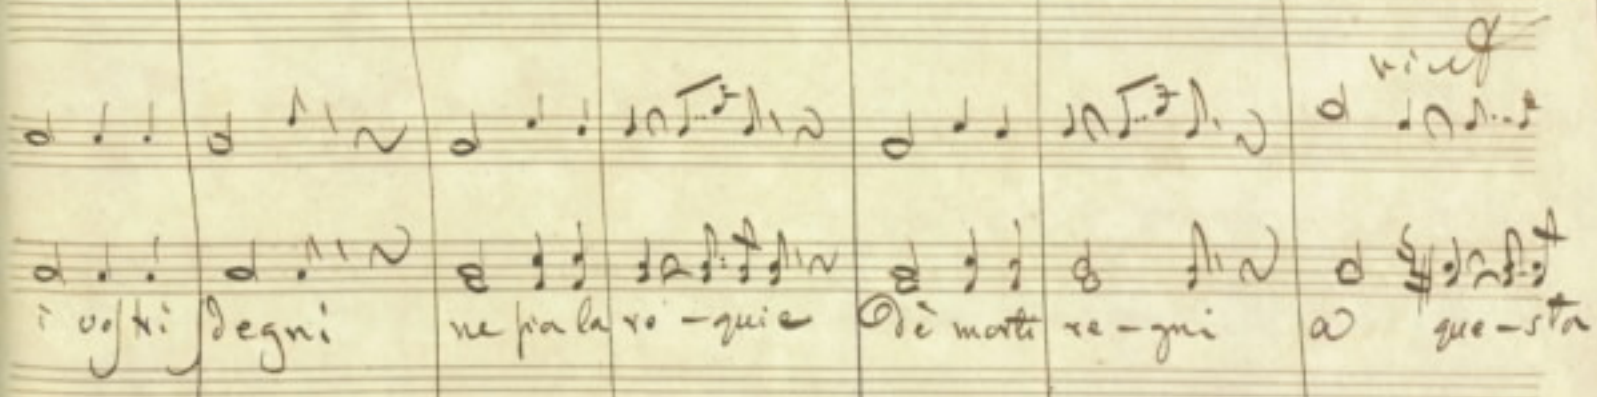 rinf
i vostri sdegni ne sia la re-quie O dè morti re-gni a que-sta